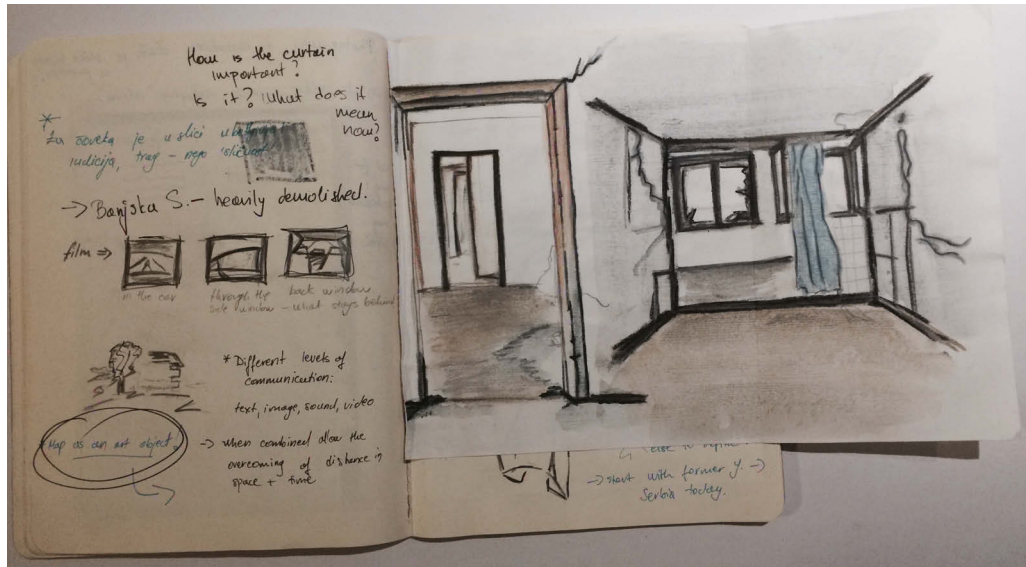 How is the curtain
important?
Is it? What does it
mean
now?
*
Za soveta je u slici
indicija, trag – nego
→ Banjska S. – heavily demolished.
film ⇒
in the car
through the
side window
back window
– what stays behind
* Different levels of
communication:
text, image, sound, video
→ when combined allow the
overcoming of distance in
space + time
*Map as an art object.
→ start with former Y. →
Serbia today.